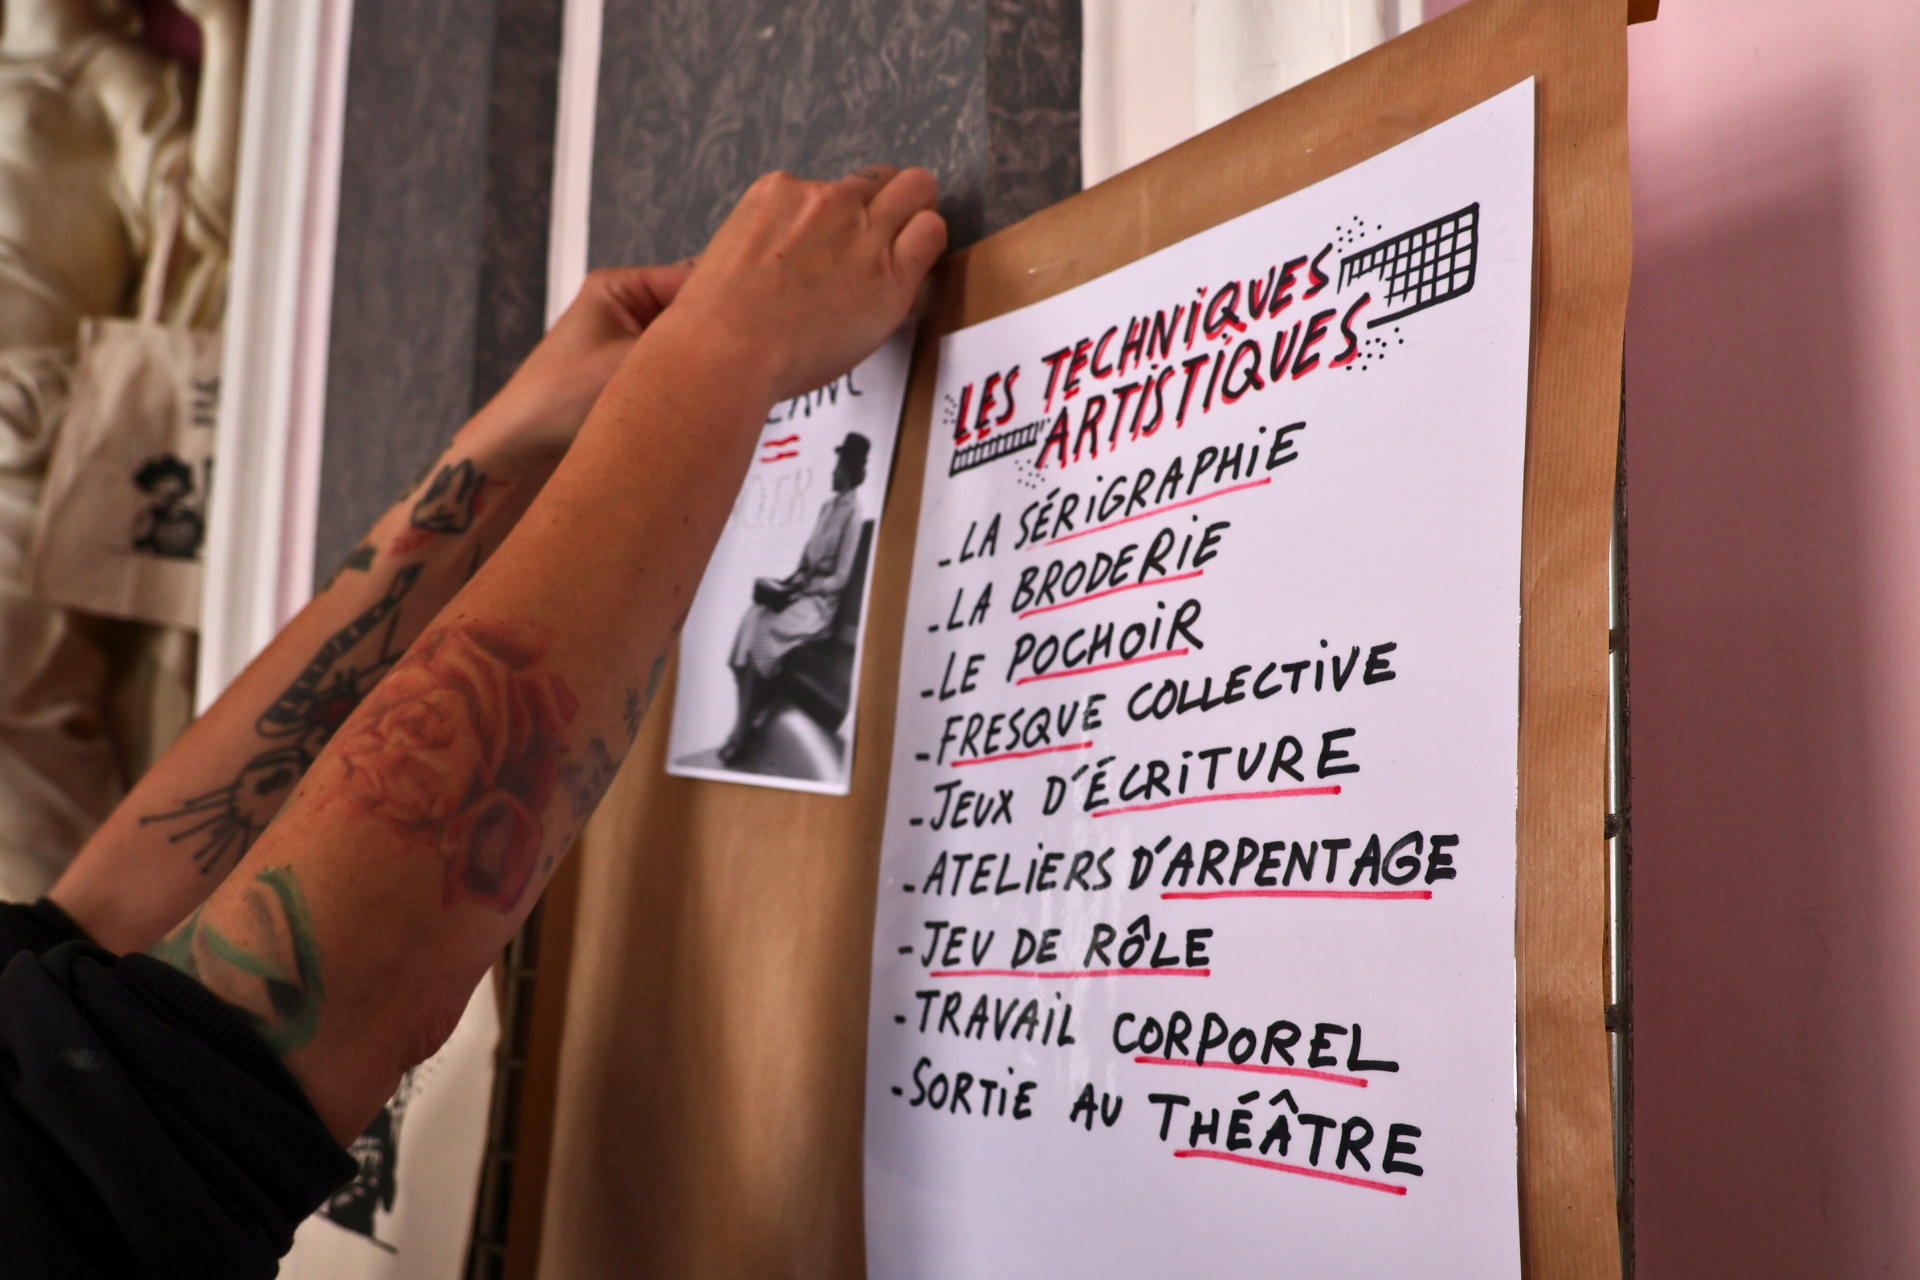 LES TECHNIQUES
ARTISTIQUES
- LA SÉRIGRAPHIE
- LA BRODERIE
- LE POCHOIR
- FRESQUE COLLECTIVE
- JEUX D'ÉCRITURE
- ATELIERS D'ARPENTAGE
- JEU DE RÔLE
- TRAVAIL CORPOREL
- SORTIE AU THÉÂTRE